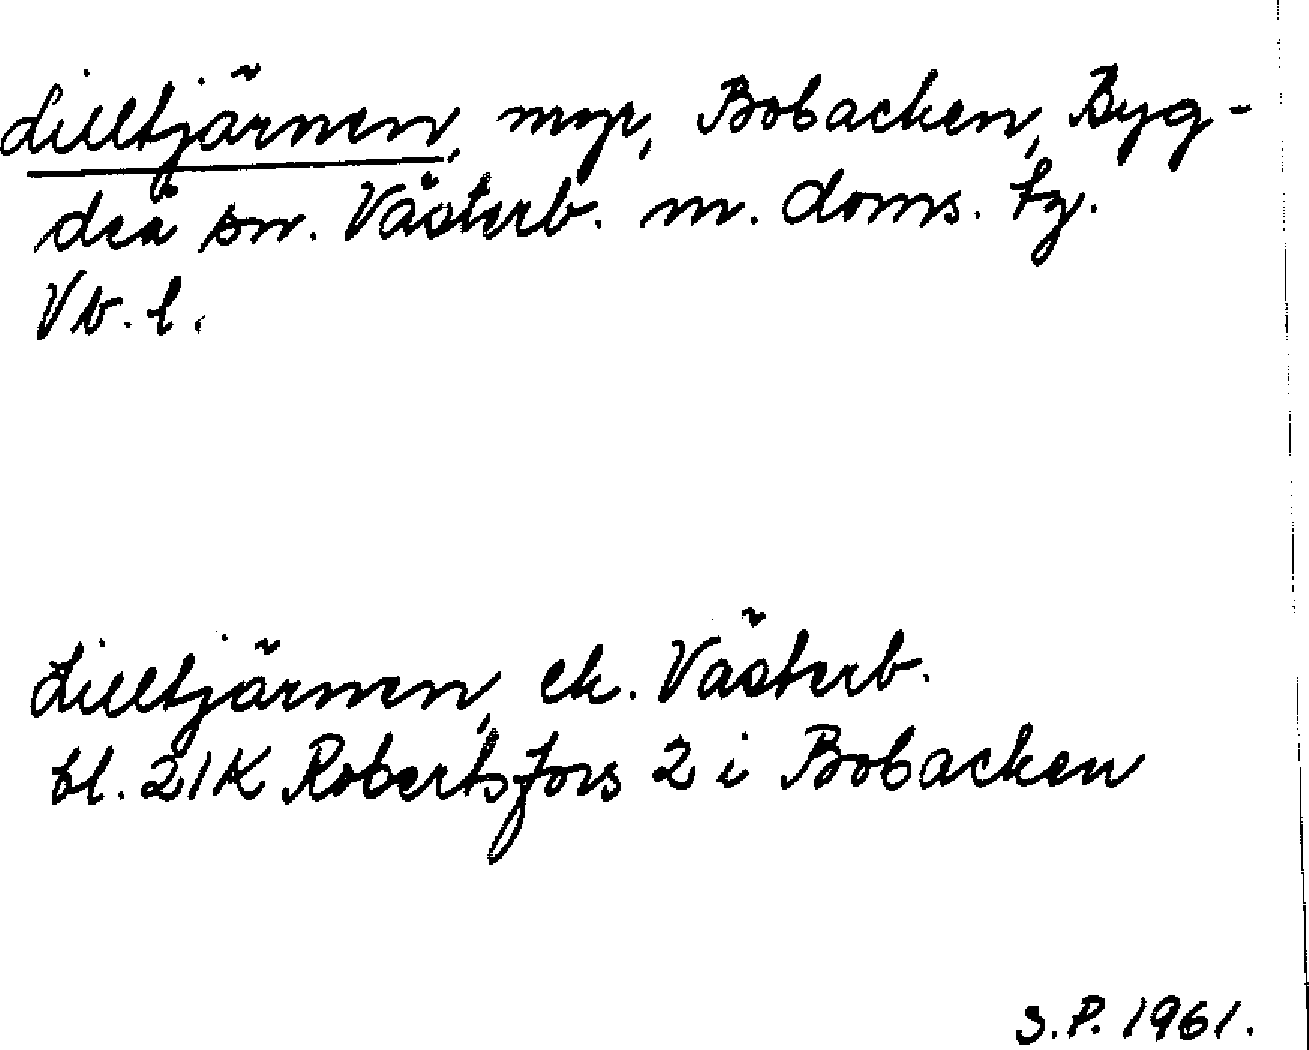 Lilltjärnen, myr, Bobacken, Byg-
deå sn. Västerb. m. doms. tg.
Vb. l.
Lilltjärnen, ek. Västerb.
bl. 21K Robertsfors 2 i Bobacken
S.P. 1961.